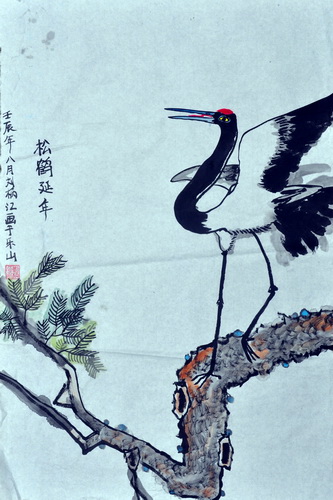 松鹤延年
壬辰年八月刘柄江画于乐山